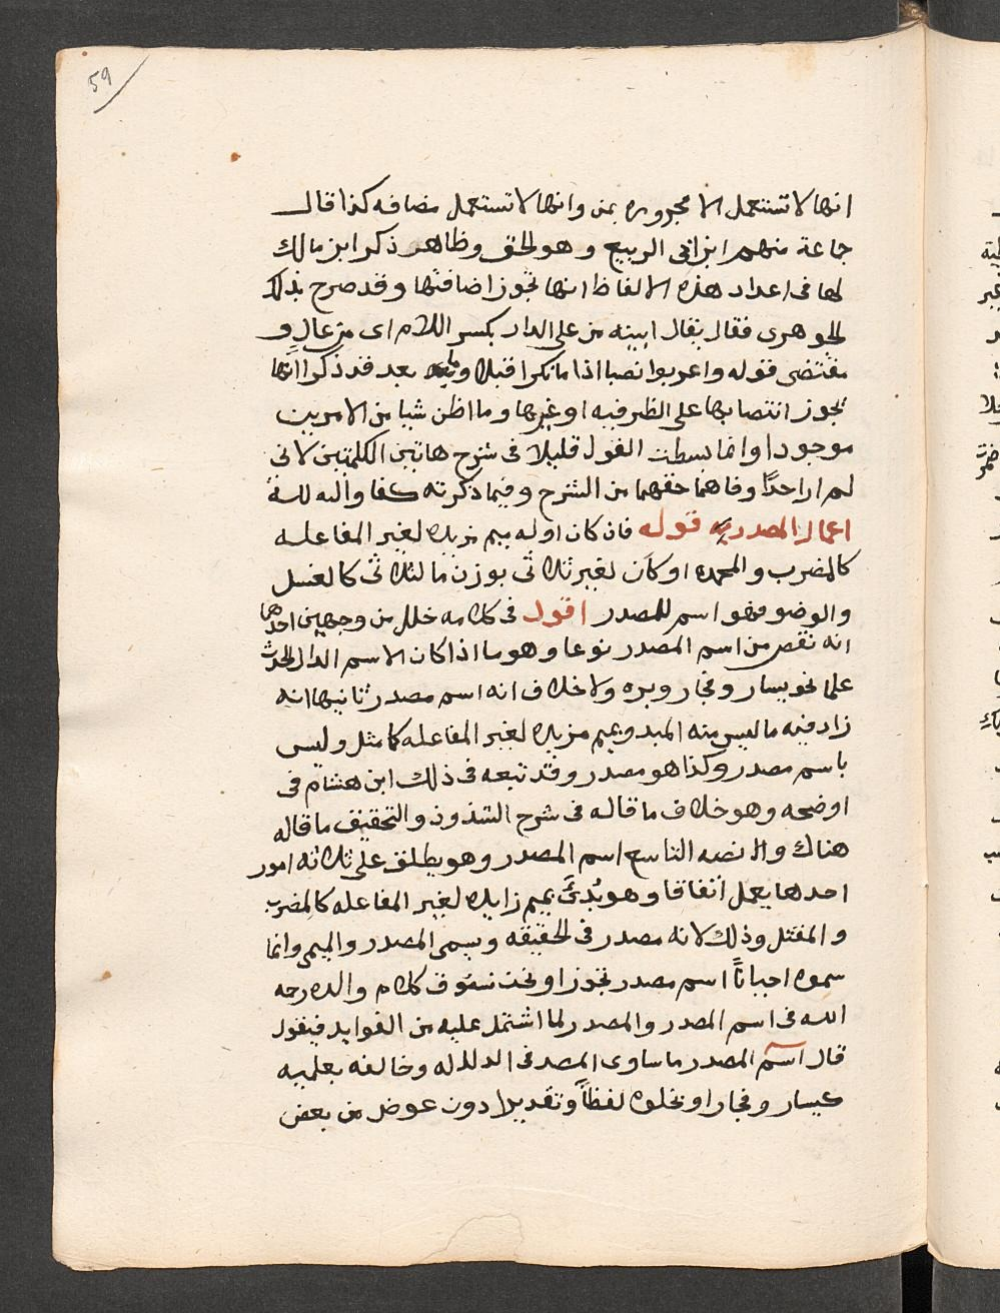 59
انها لا تستعمل الا مجروره بمن وانها لا تستعمل مضافه كذا قال
جماعة منهم ابن ابي الربيع وهو الحق وظاهر ذكر ابن مالك
لها في اعداد هذه الالفاظ انها تجوز اضافتها وقد صرح بذلك
الجوهري فقال يقال اتيته من على الدار بكسر اللام اى من عالٍ و
مقتضى قوله واعربوا نصبا اذا ما نكرا قبلا وما بعد قد ذكرا انها
تجوز انتصابها على الظرفيه او غيرها وما اظن شيا من الامرين
موجودا وانما بسطت القول قليلا في شرح هاتين الكلمتين لاني
لم ار احدًا وفاهما حقهما من الشرح وفيما ذكرته كفا والله
اعمال المصدر قوله فان كان اوله ميم مزيده لغير المفاعله
كالمضرب والمحمده او كان لغير ثلاثي بوزن ما لثلاثي كالغسل
والوضو فهو اسم للمصدر اقول في كلامه خلل من وجهين احدهما
انه نقص من اسم المصدر نوعا وهو ما اذا كان الاسم الدال الحدث
علما نحو يسار وفجار وبره ولا خلاف انه اسم مصدر ثانيها انه
زاد فيه ما ليس منه المبدو بميم مزيده لغير المفاعله كما مثل وليس
باسم مصدر وكذا هو مصدر وقد تبعه في ذلك ابن هشام في
اوضحه وهو خلاف ما قاله في شرح الشذور والتحقيق ما قاله
هناك و نصه التاسع اسم المصدر وهو يطلق على ثلاثه امور
احدها يعمل اتفاقا وهو بُدئَ بميم زايده لغير المفاعله كالمضرب
والمقتل وذلك لانه مصدر في الحقيقه ويسمى المصدر والميمي وانما
سموه احيانًا اسم مصدر تجوزا ونحن نسوق كلام والده رحمه
الله في اسم المصدر والمصدر لما اشتمل عليه من الفوايد فيقول
قال اسم المصدر ما ساوى المصدر في الدلاله وخالفه بعلميه
كيسار وفجار او بخلوه لفظاً وتقديرا دون عوض من بعض